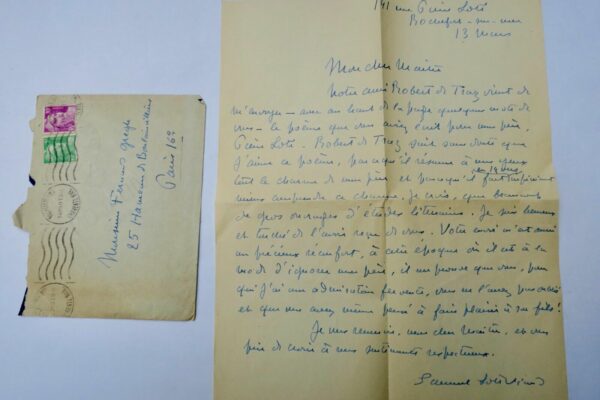 141 rue Pierre Loti
Rochefort-sur-mer
13 mars
Mon cher Maître
Notre ami Robert de Traz vient de
m'envoyer – avec au haut de la page quelques mots de
vous – le poème que vous aviez écrit pour mon père,
Pierre Loti. Robert de Traz sait sans doute que
j'aime ce poème, parce qu'il résume à mes yeux
tout le charme de mon père et parce qu'il fait en 14 vers
mieux comprendre ce charme, je crois, que beaucoup
de gros ouvrages d'études littéraires. Je suis heureux
et touché de l'avoir reçu de vous. Votre envoi m'est aussi
un précieux réconfort, à cette époque où il est à la
mode d'ignorer mon père, il me prouve que vous, pour
qui j'ai une admiration fervente, vous ne l'avez pas oublié
et que vous avez même pensé à faire plaisir à son fils!
Je vous remercie, mon cher Maître, et vous
prie de croire à mes sentiments respectueux.
Samuel Loti-Viaud
Monsieur Fernand Gregh
25 Hameau de Boulainvilliers
Paris 16e